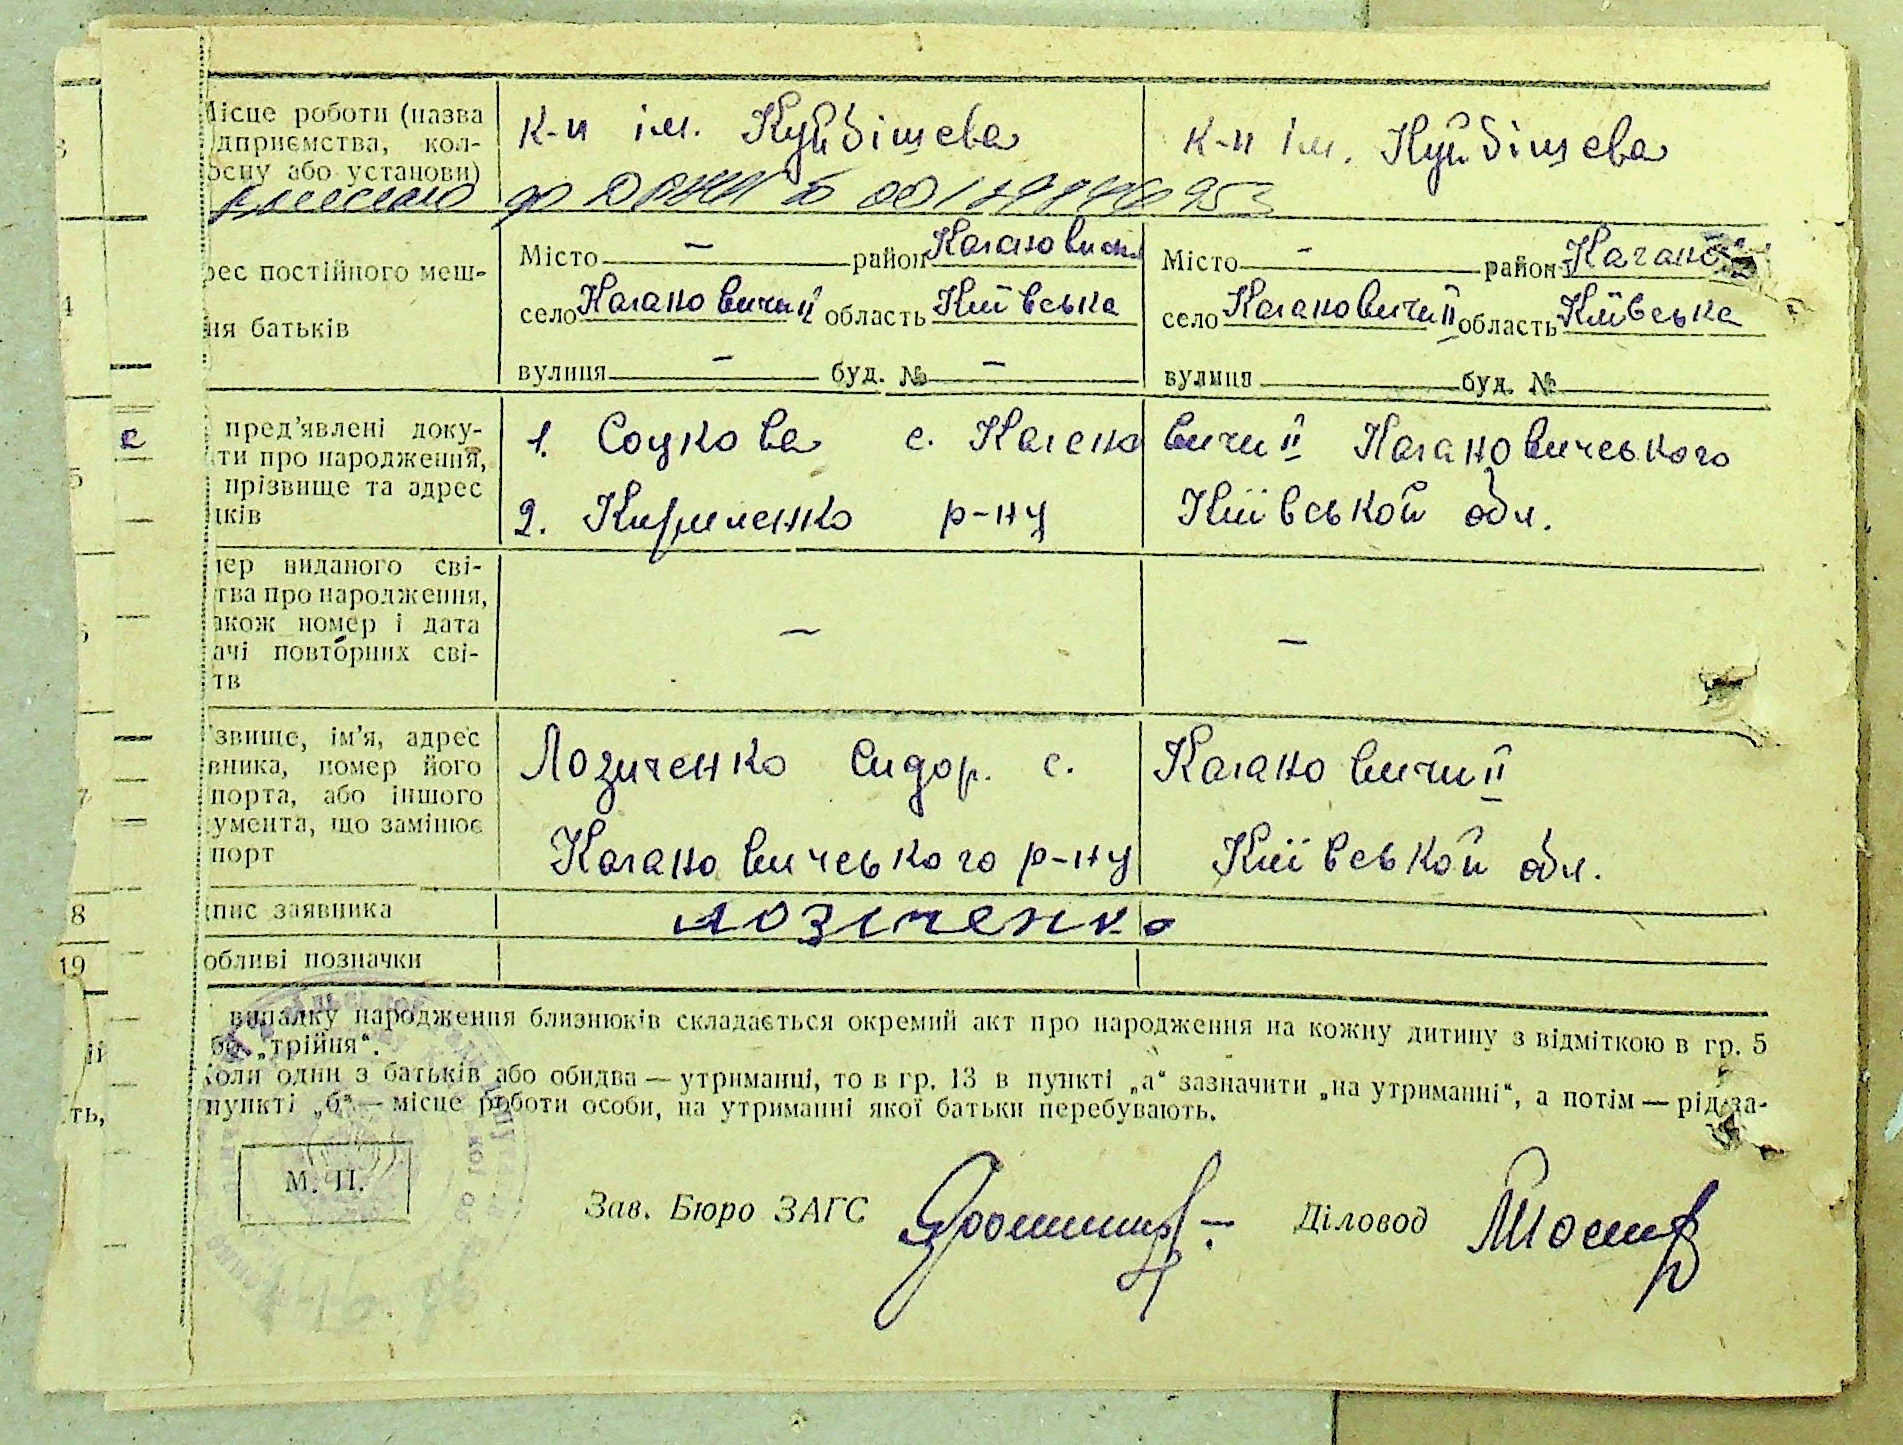 3
Місце роботи (назва
дприємства, кол-
оспу або установи)
к-п ім. Куйбішева
к-п ім. Куйбішева
внесено до ДРАЦС
4
рес постійного меш-
ня батьків
Місто — район Каганович.
село Кагановичи ІІ область Київська
вулиця — буд. № —
Місто — район Кагано
село Кагановичи ІІ область Київська
вулиця буд. №
5
пред’явлені доку-
ти про народження,
прізвище та адрес
дків
1. Соцкова с. Кагановичи ІІ Кагановичського
2. Кириленко р-ну Київськой обл.
мер виданого сві-
тва про народження,
акож номер і дата
ачі повторних сві-
тв
— —
7
звище, ім’я, адрес
вника, номер його
порта, або іншого
умента, що замінює
порт
Лозиченко Сидор. с. Кагановичи ІІ
Кагановичського р-ну Київськой обл.
8
пис заявника
лозіченко
19
обливі позначки
випадку народження близнюків складається окремий акт про народження на кожну дитину з відміткою в гр. 5
бо „трійня“.
Коли один з батьків або обидва — утриманці, то в гр. 13 в пункті „а“ зазначити „на утриманні“, а потім — рід за-
ть,
пункті „б“ — місце роботи особи, на утриманні якої батьки перебувають.
М. П.
Зав. Бюро ЗАГС
Діловод